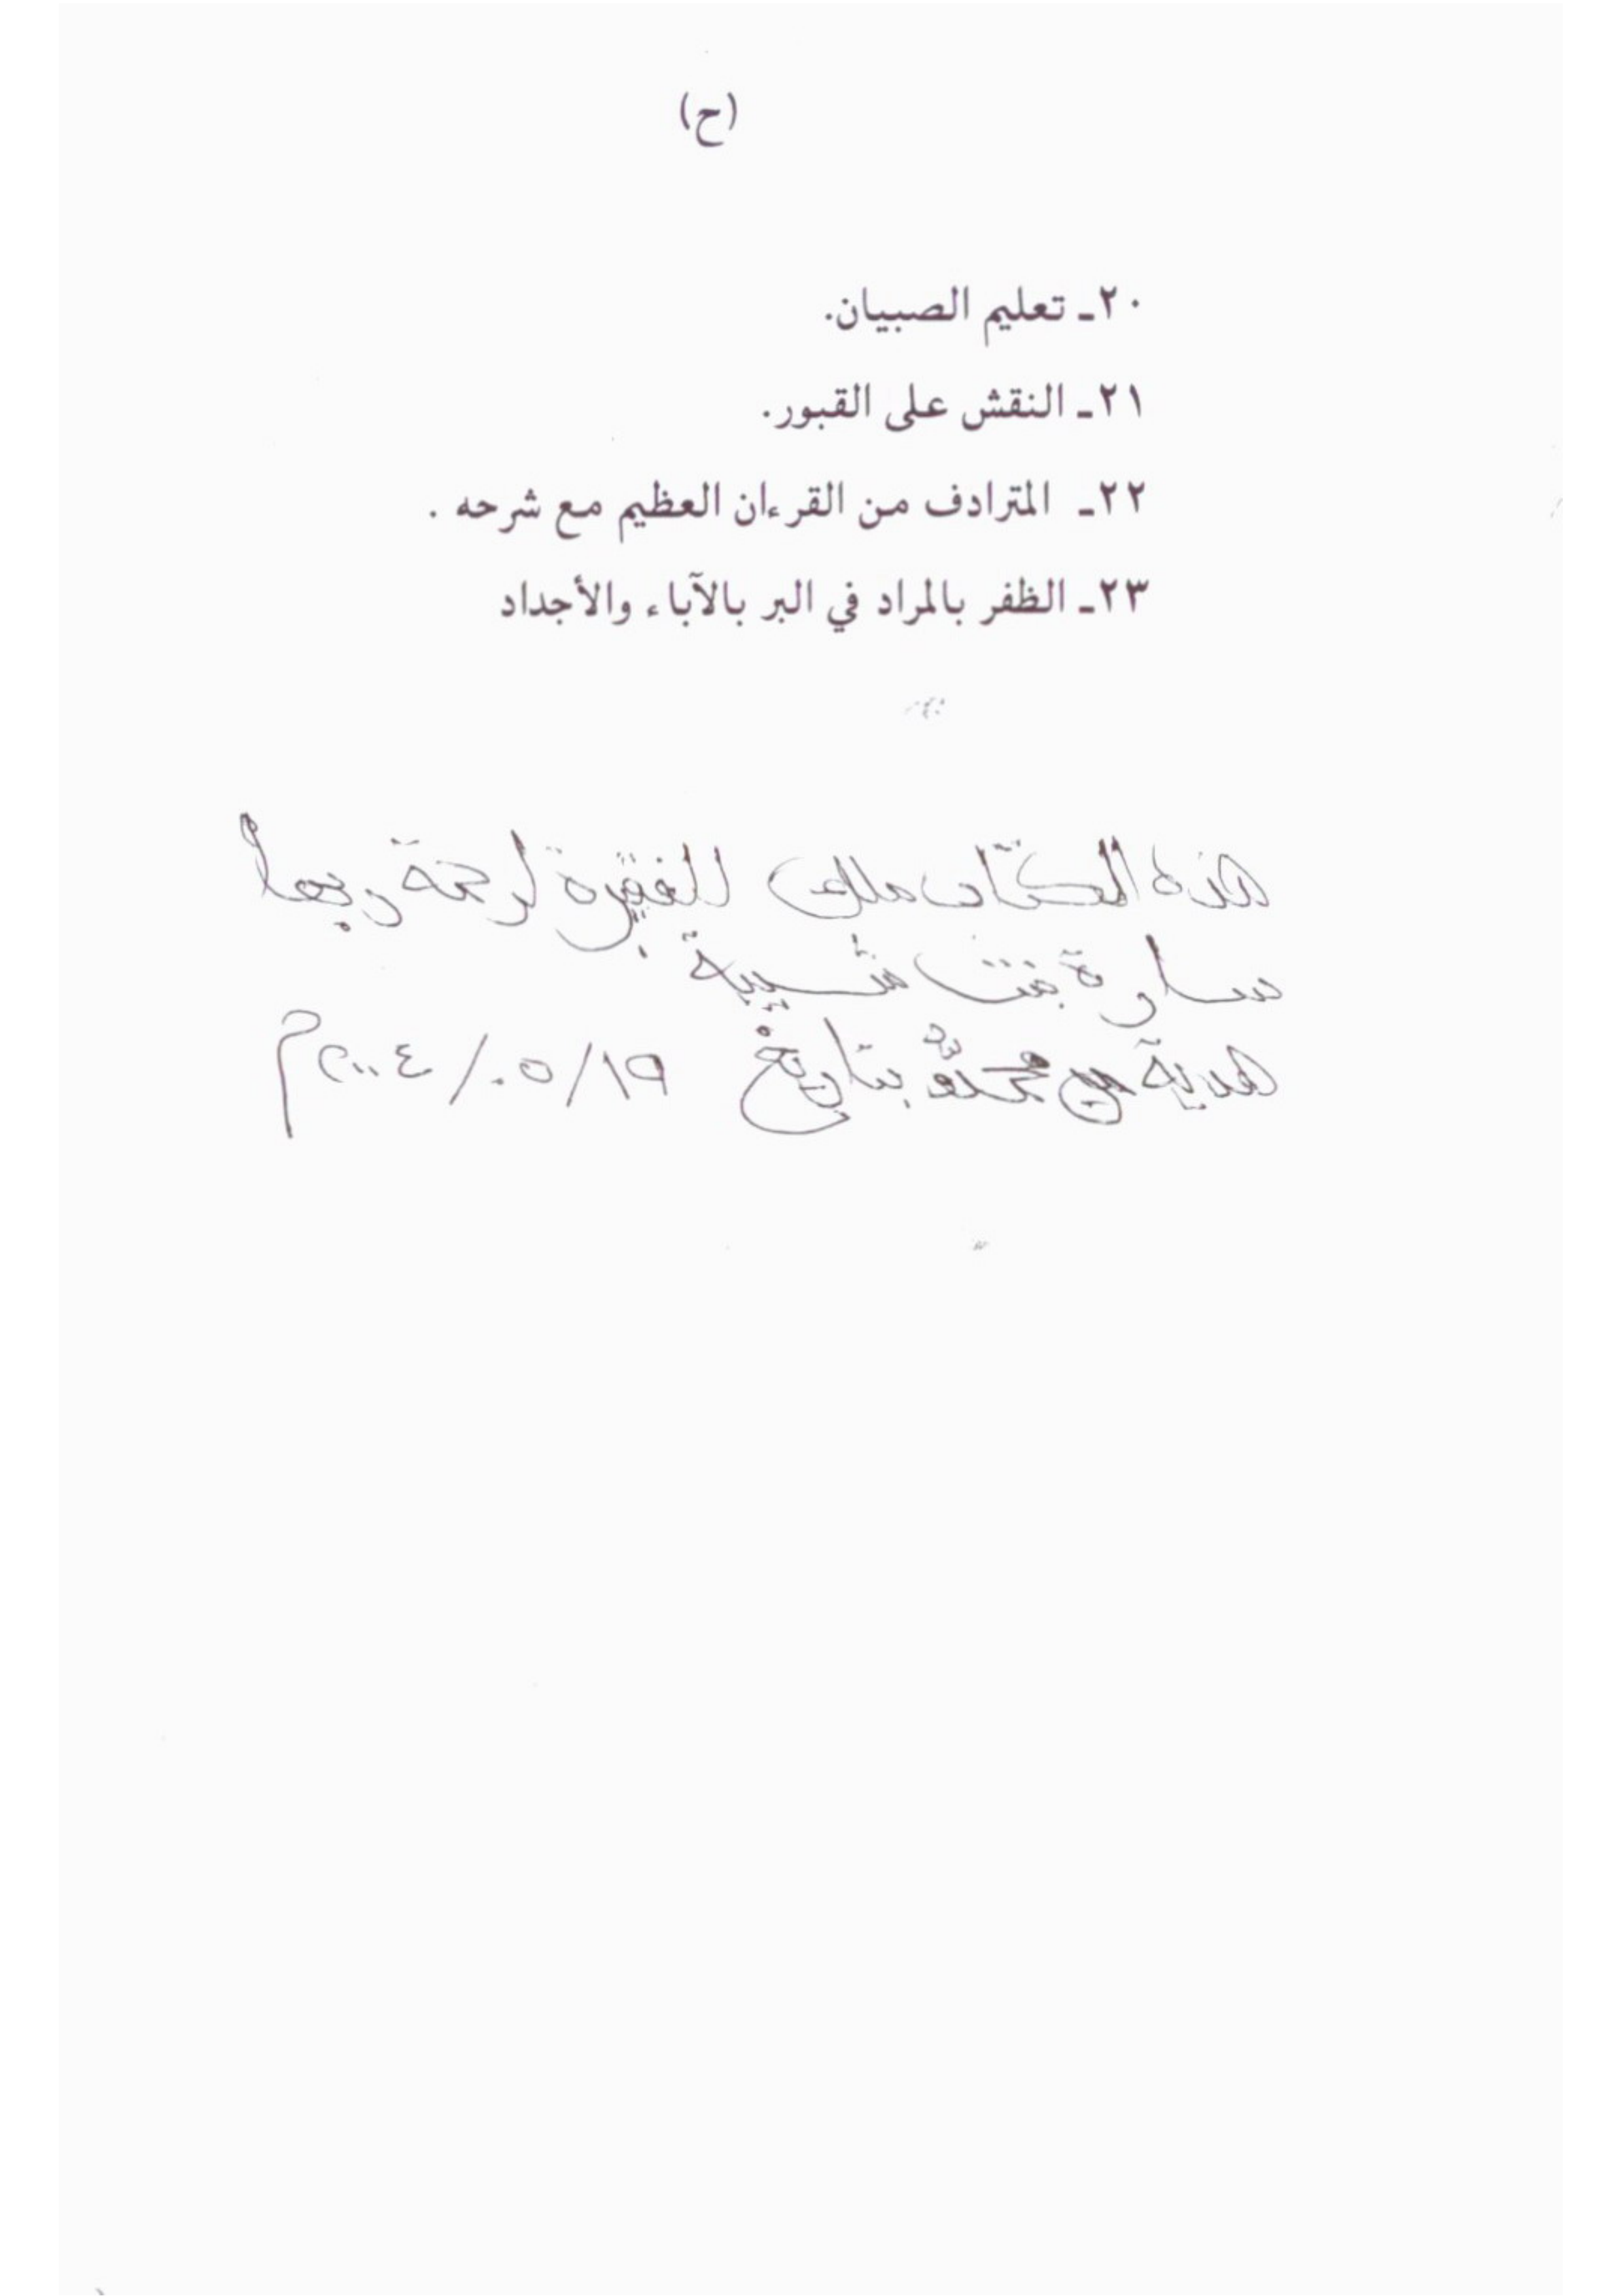 (ح)
٢٠ـ تعليم الصبيان.
٢١ـ النقش على القبور.
٢٢ـ المترادف من القرءان العظيم مع شرحه .
٢٣ـ الظفر بالمراد في البر بالآباء والأجداد
هذه الكتاب ملك للفقيرة لرحمة ربها
سارة بنت
هدية من محمد بتاريخ ١٩/٠٥/٢٠٠٤م